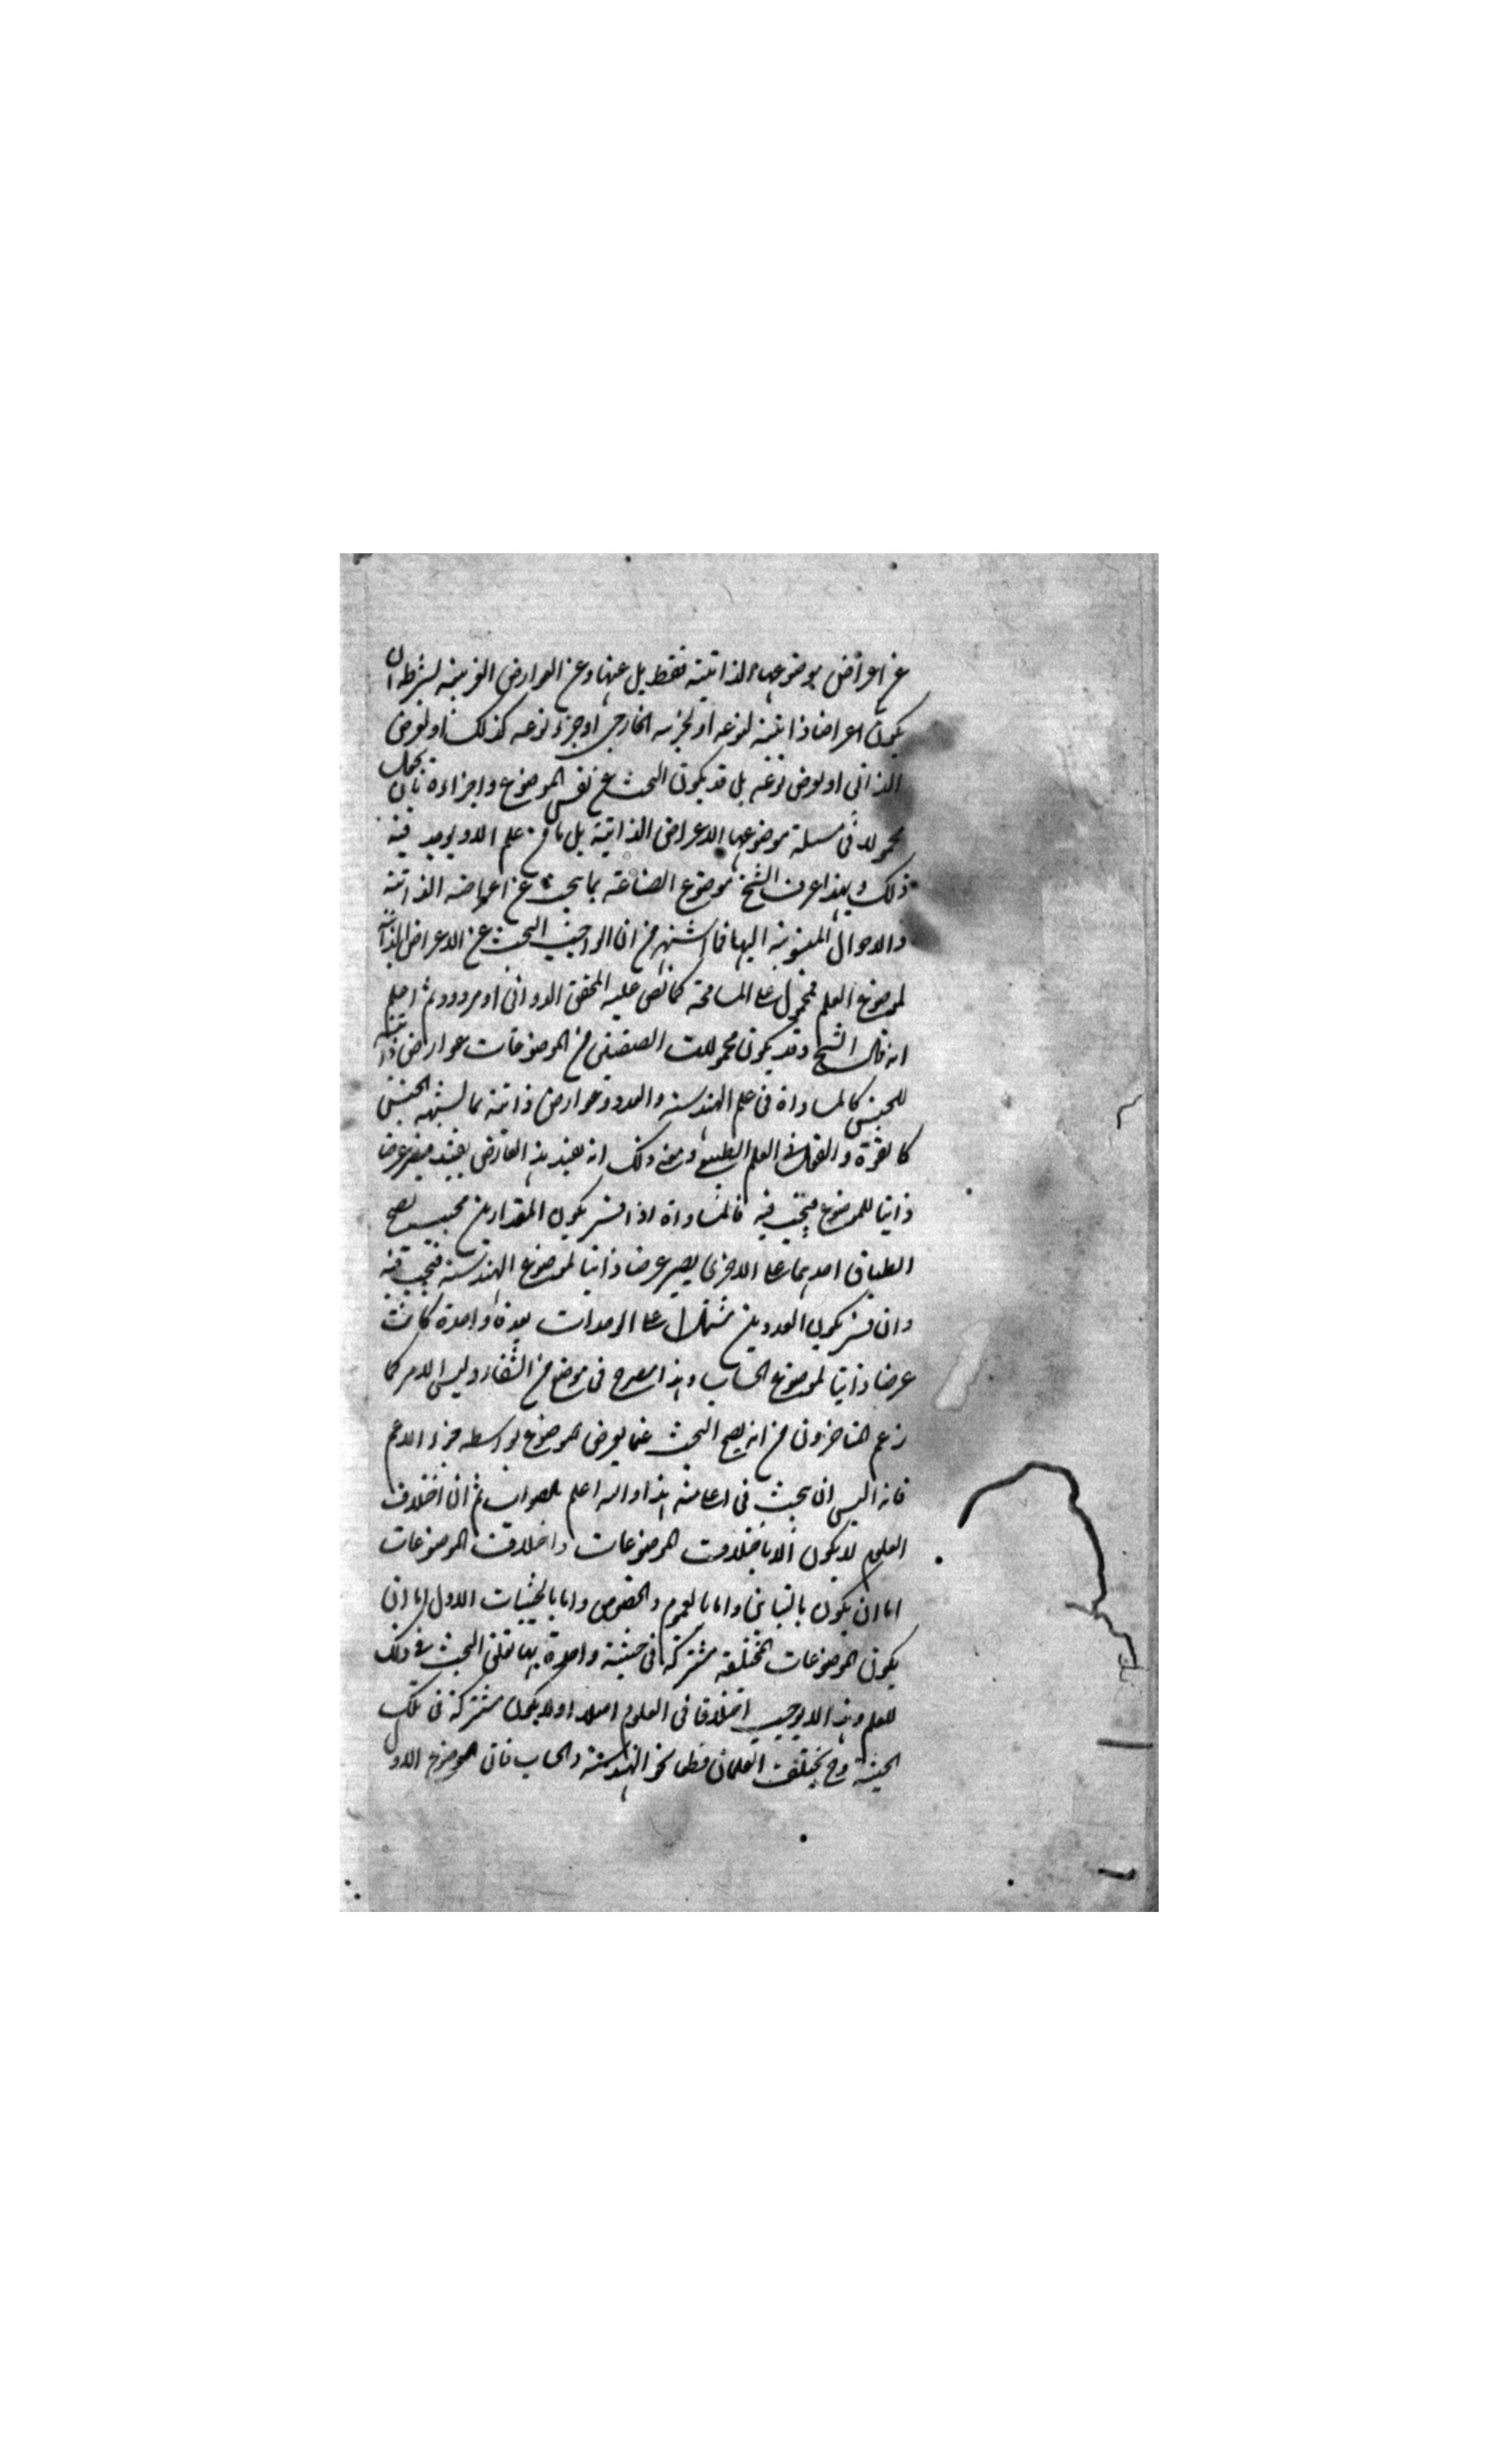 عن اعراض موضوعها الذاتية فقط بل عنها وعن العوارض الغريبة بشرط ان
يكون اعراضا ذاتية لنوعه او لجزءه الخارجي او جزء نوعه كذلك او لعرض
الذاتي او لعرض نوعه بل قد يكون البحث عن نفس الموضوع واجزاءه بان يجعل
محمولا في مسئلة موضوعها الاعراض الذاتية بل ما من علم الا ويوجد فيه
ذلك وبهذا عرف الشيخ موضوع الصناعة بما يبحث عن اعراضه الذاتية
والاحوال المنسوبة اليها فما اشتهر من ان الواجب البحث عن الاعراض الذاتية
لموضوع العلم فمحمول على المسامحة كما نص عليه المحقق الدواني او مردود ثم اعلم
انه قال الشيخ وقد يكون محمولات الصنفين من الموضوعات عوارض ذاتية
للجنس كالمساواة في علم الهندسة والعدد وعوارض ذاتية بما يشبه الجنس
كالقوة والفعل في العلم الطبيعي ومعنى ذلك انه يقيد هذا العارض بقيد فيصير عرضا
ذاتيا للموضوع فيبحث فيه فالمساواة اذا فسر بكون المقدارين بحيث يصح
انطباق احدهما على الاخرى يصير عرضا ذاتيا لموضوع الهندسة فيبحث فيه
وان فسر بكون العددين مشتملا على الوحدات بعدة واحدة كانت
عرضا ذاتيا لموضوع الحساب وهذا مصرح في موضع من الشفاء وليس الامر كما
زعم المتاخرون من انه يصح البحث عما يعرض لموضوع بواسطة جزء الاعم
فانه اليس ان يبحث في اعا منه هذا والله اعلم بالصواب ثم ان اختلاف
العلوم لا يكون الا باختلاف الموضوعات واختلاف الموضوعات
اما ان يكون بالتباين واما بالعموم والخصوص واما بالحيثيات الاول اما ان
يكون الموضوعات المختلفة مشتركة في حيثية واحدة بها تعلق البحث في ذلك
للعلم وهذا لا يوجب اختلافا في العلوم اصلا او لا يكون مشتركة في تلك
الحيثية وح يختلف العلمان قطعا نحو الهندسة والحساب فان الموضوع الاول